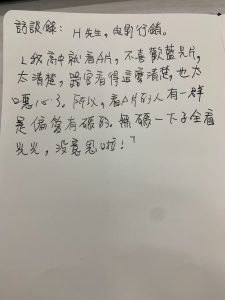 訪談錄： H 先生，電影行銷。
「我高中就看A片，不喜歡藍光片，
太清楚，誰要看得這麼清楚，也太
噁心了。所以，看A片的人有一群
是偏愛有碼的。無碼一下子全看
光光，沒意思啦！」